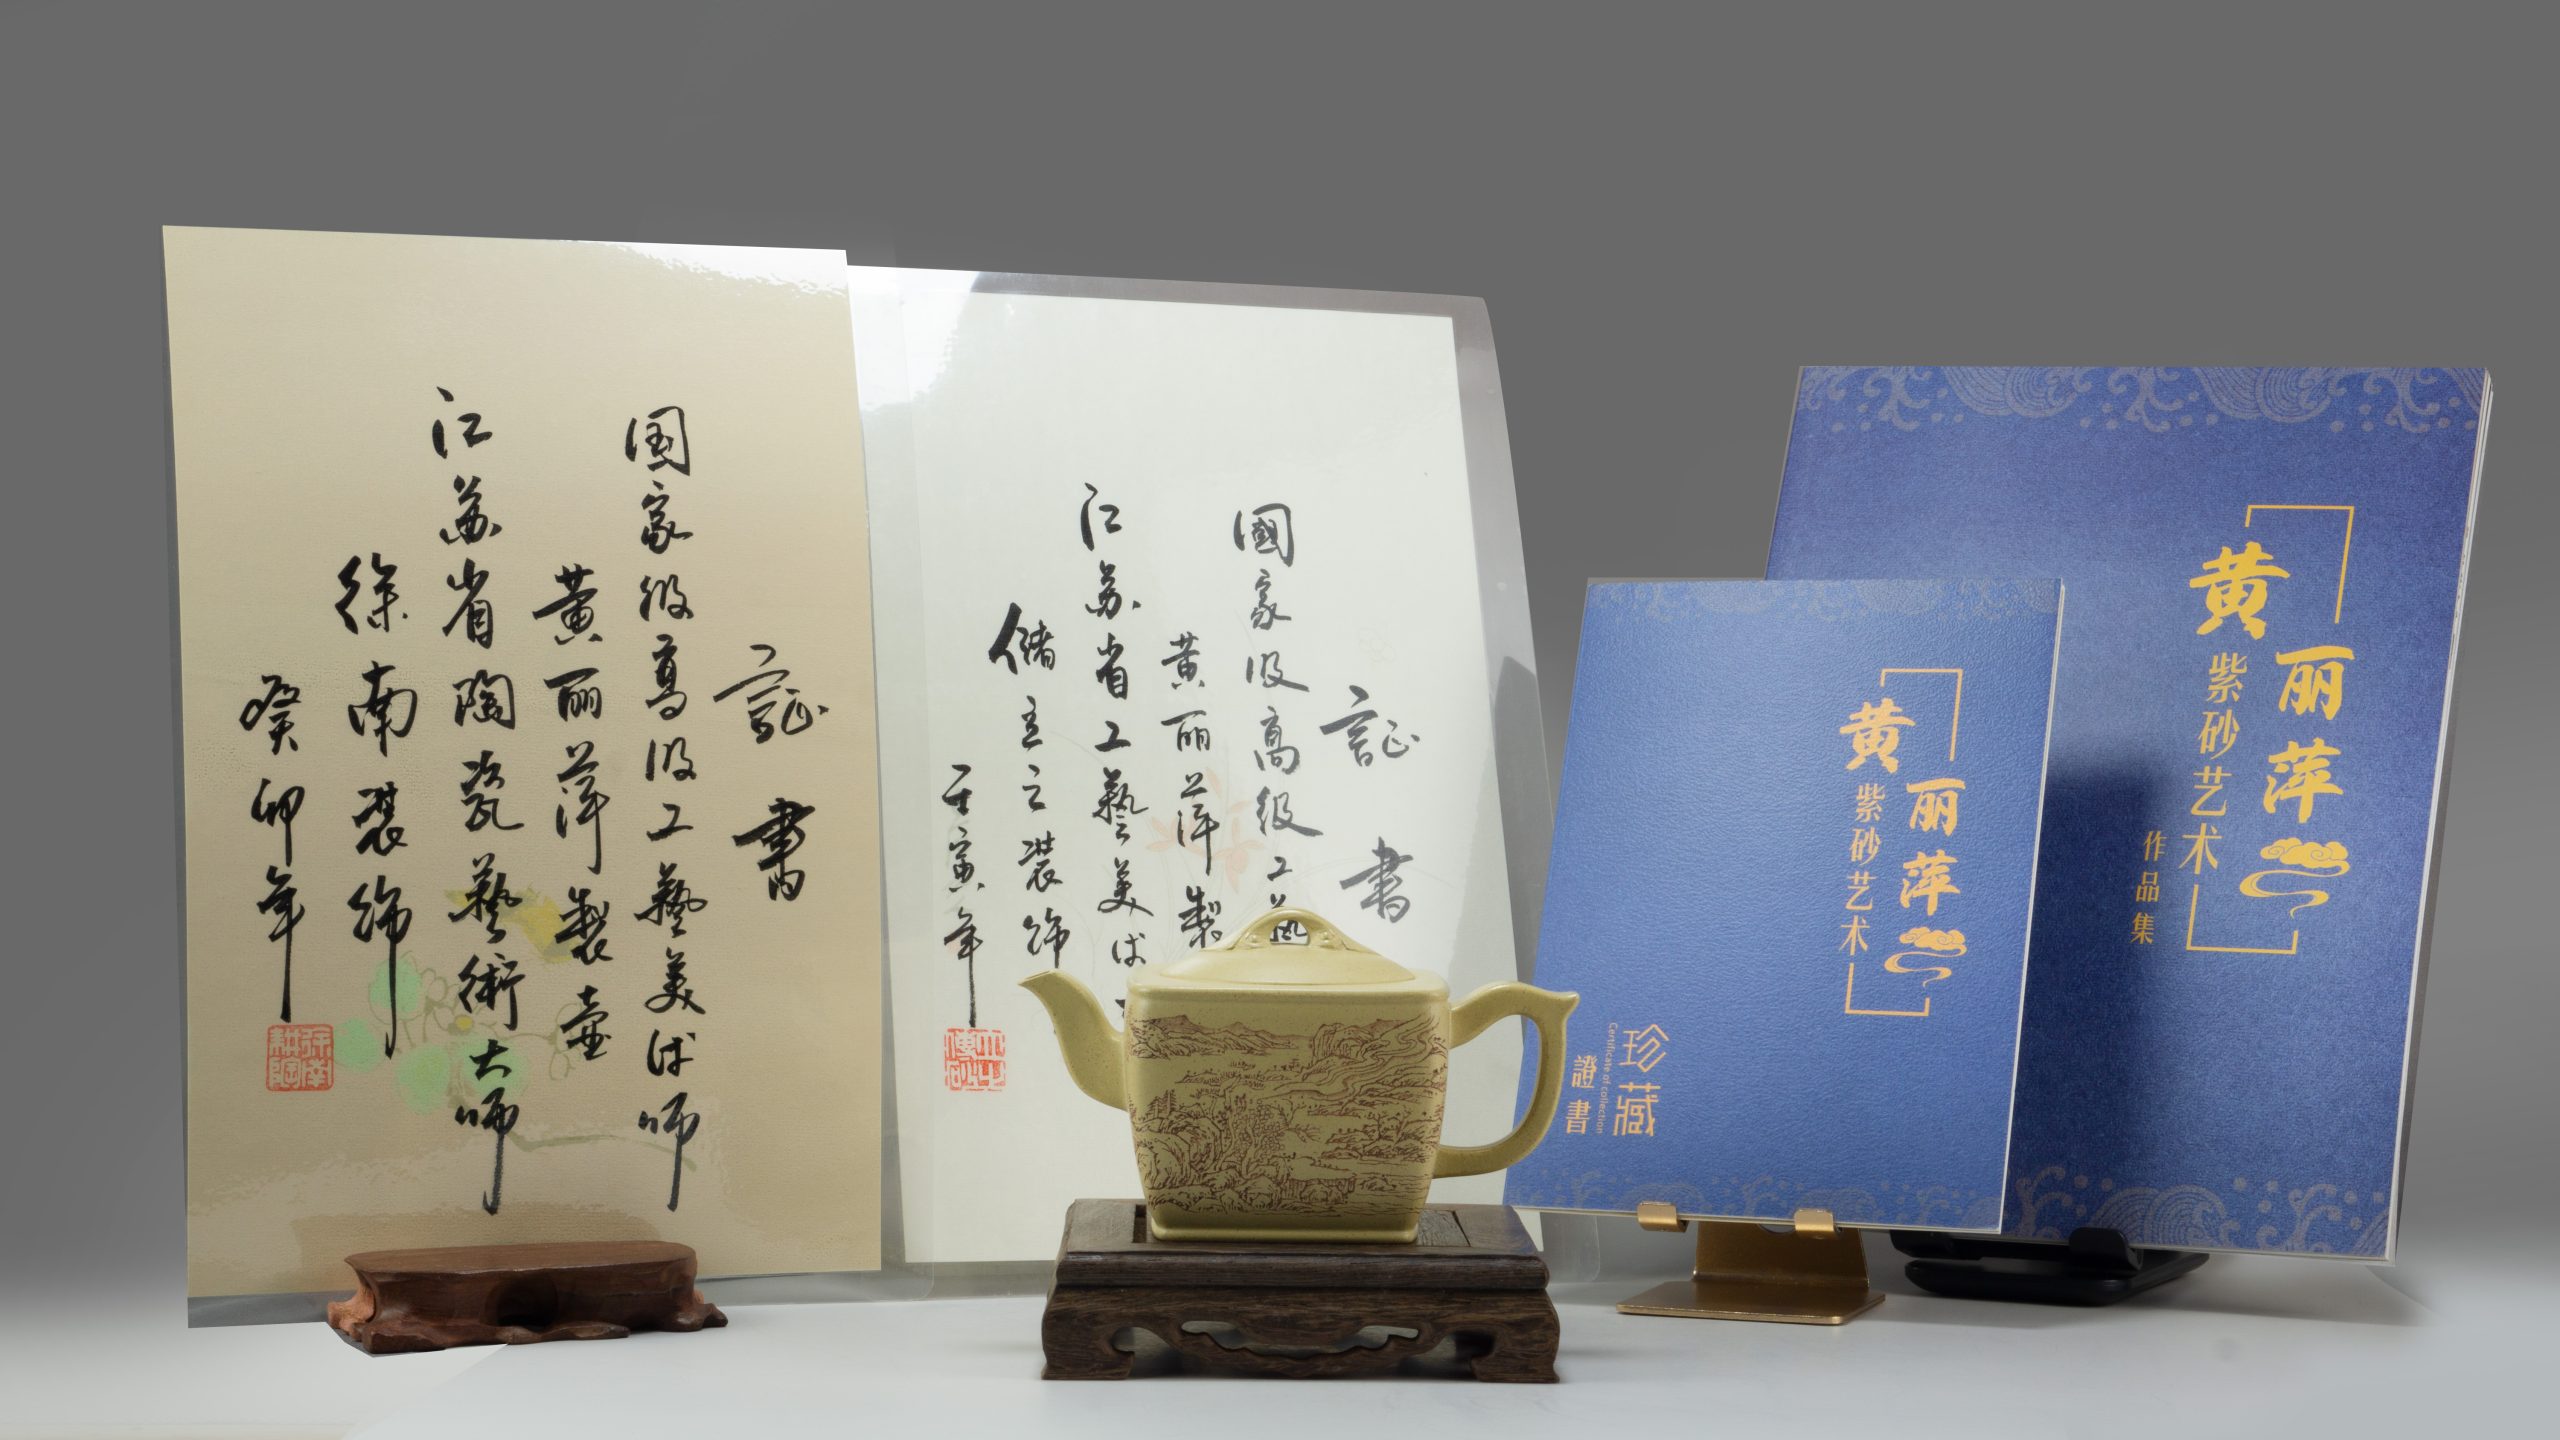 証書
国家级高级工藝美術师
黄丽萍製壶
江苏省陶瓷藝術大师
徐南裝饰
癸卯年
証書
國家级高级工藝
黄丽萍製
江苏省工藝美術
储立之装饰
壬寅年
黄丽萍
紫砂艺术
珍藏
Certificate of collection
證書
黄丽萍
紫砂艺术
作品集